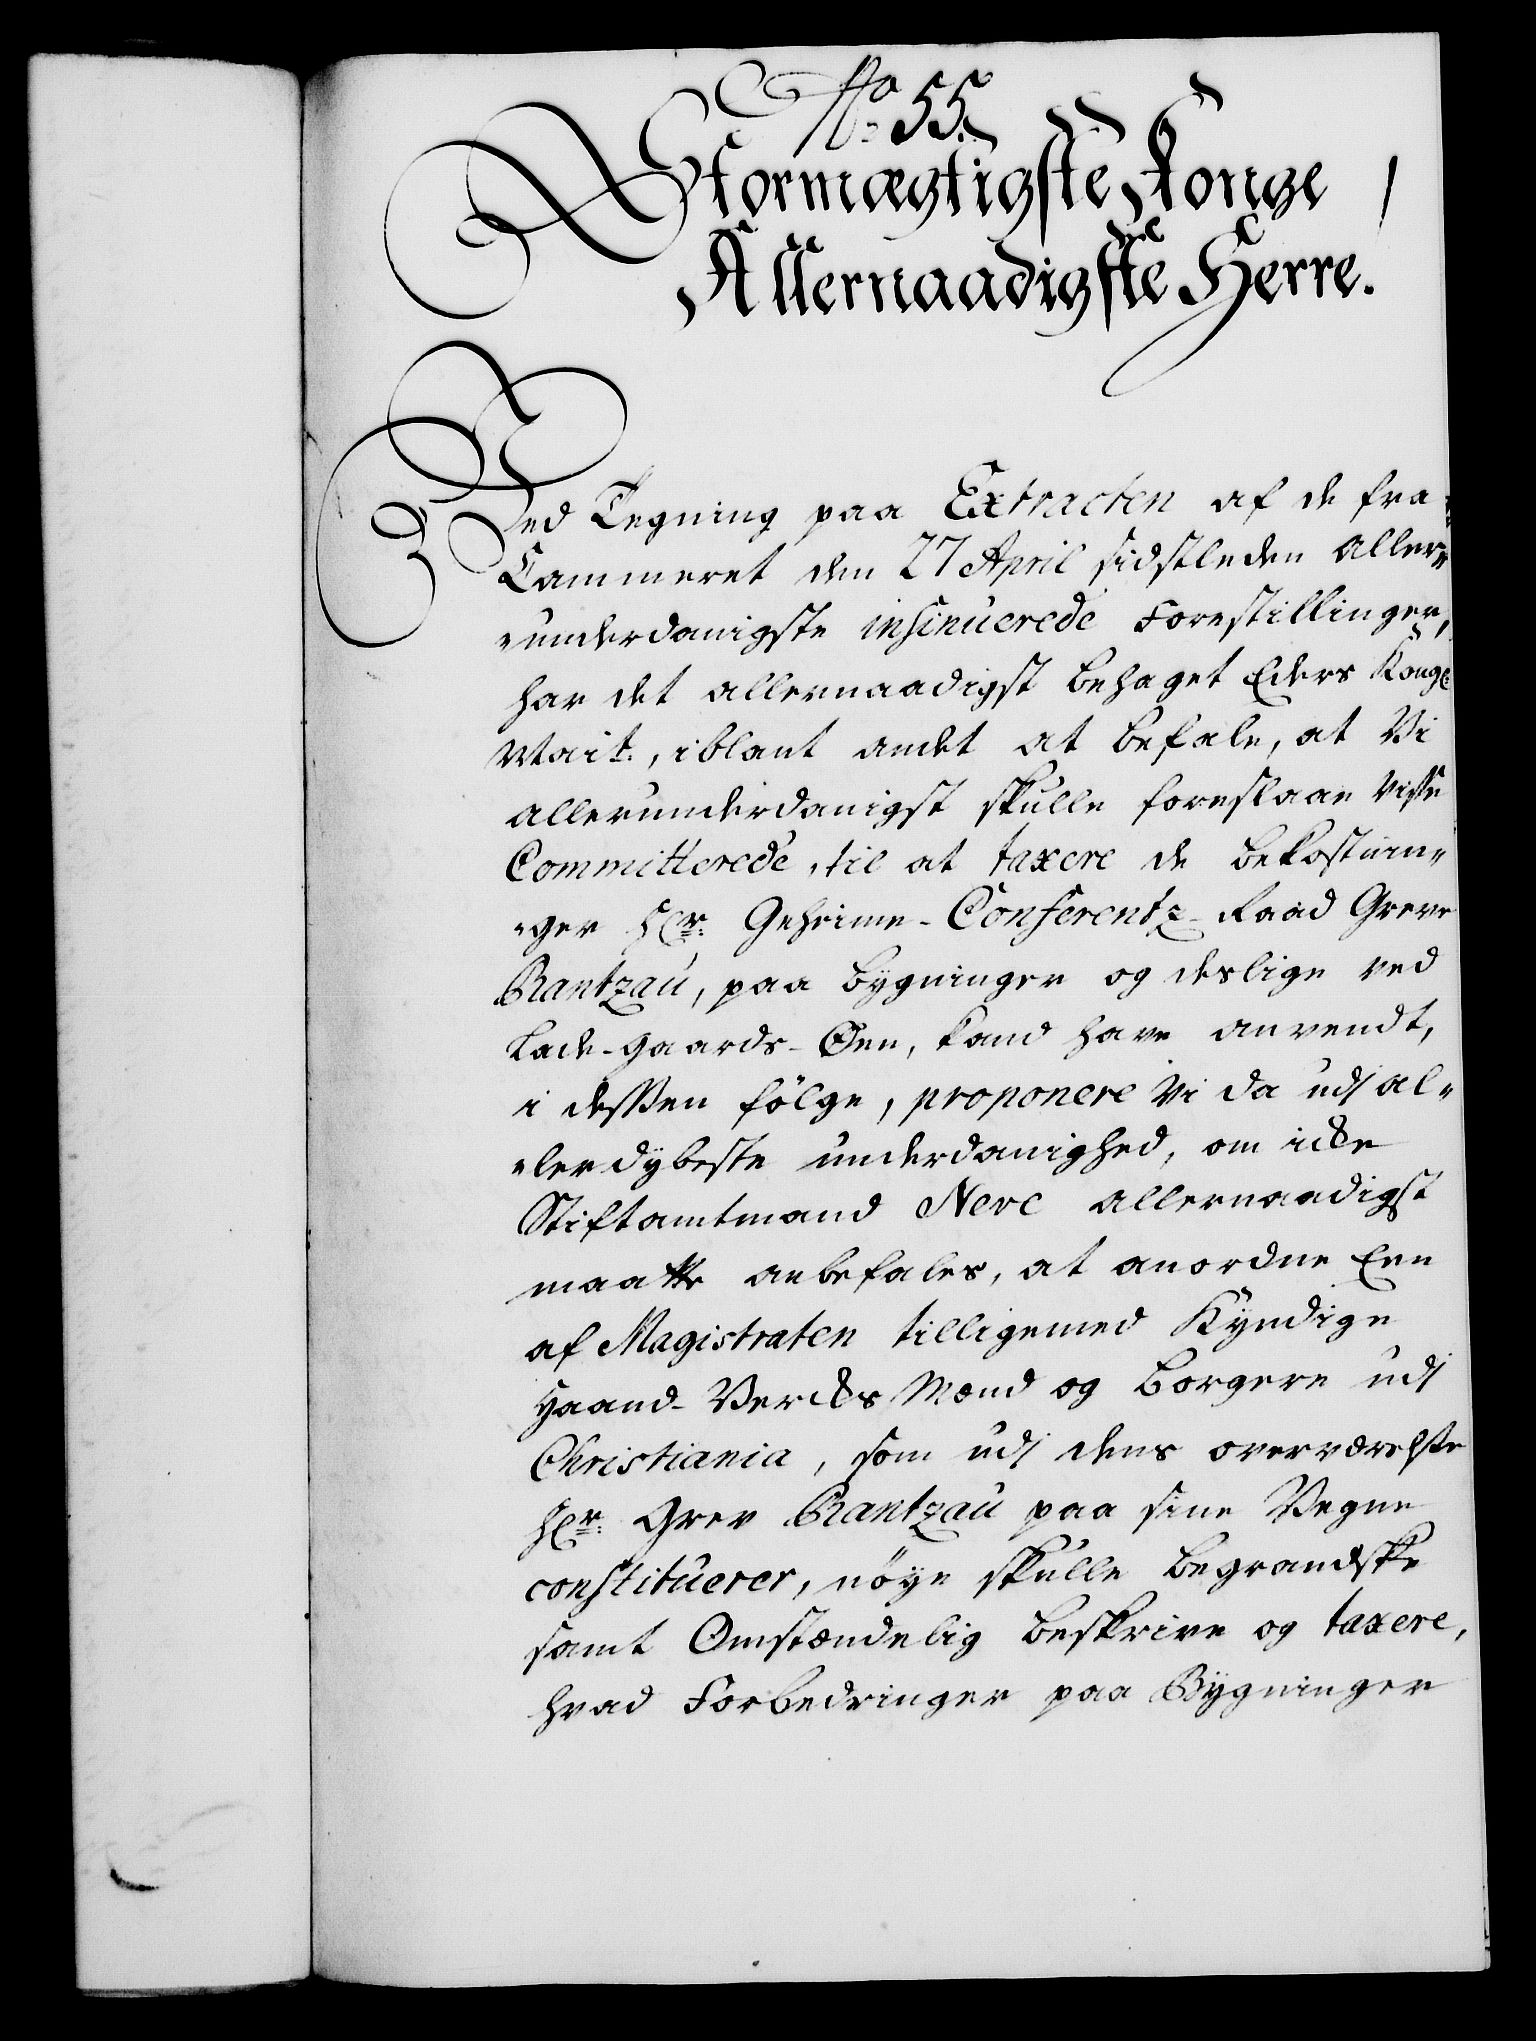 No 55.
Stormægtigste Konge
Allernaadigste Herre.
Ved Tegning paa Extracten af de fra
Cammeret den 27 April sidstleden aller„
„underdanigste insinuerede Forestillinger,
har det allernaadigst behaget Eders Kongl
Mait., iblant andet at befale, at Vi
allerunderdanigst skulle foreslaae visse
Committerede, til at taxere de bekostnin„
„ger Hr: Geheime-Conferentz-Raad Greve
Rantzau, paa bygninger og deslige ved
Lade-Gaards-Øen, kand have anvendt,
i dessen følge, proponere Vi da udj al„
„lerdybeste underdanighed, om icke
Stiftamtmand Nere allernaadigst
maatte anbefales, at anordne Een
af Magistraten tilligemed Kyndige
Haand-Vercks Mænd og Borgere udj
Christiania, som udj dens overværelse
Hr: Grev Rantzau paa sine Vegne
constituerer, nøye skulle begrandske
samt Omstændelig beskrive og taxere,
hvad Forbedringer paa Bygninger